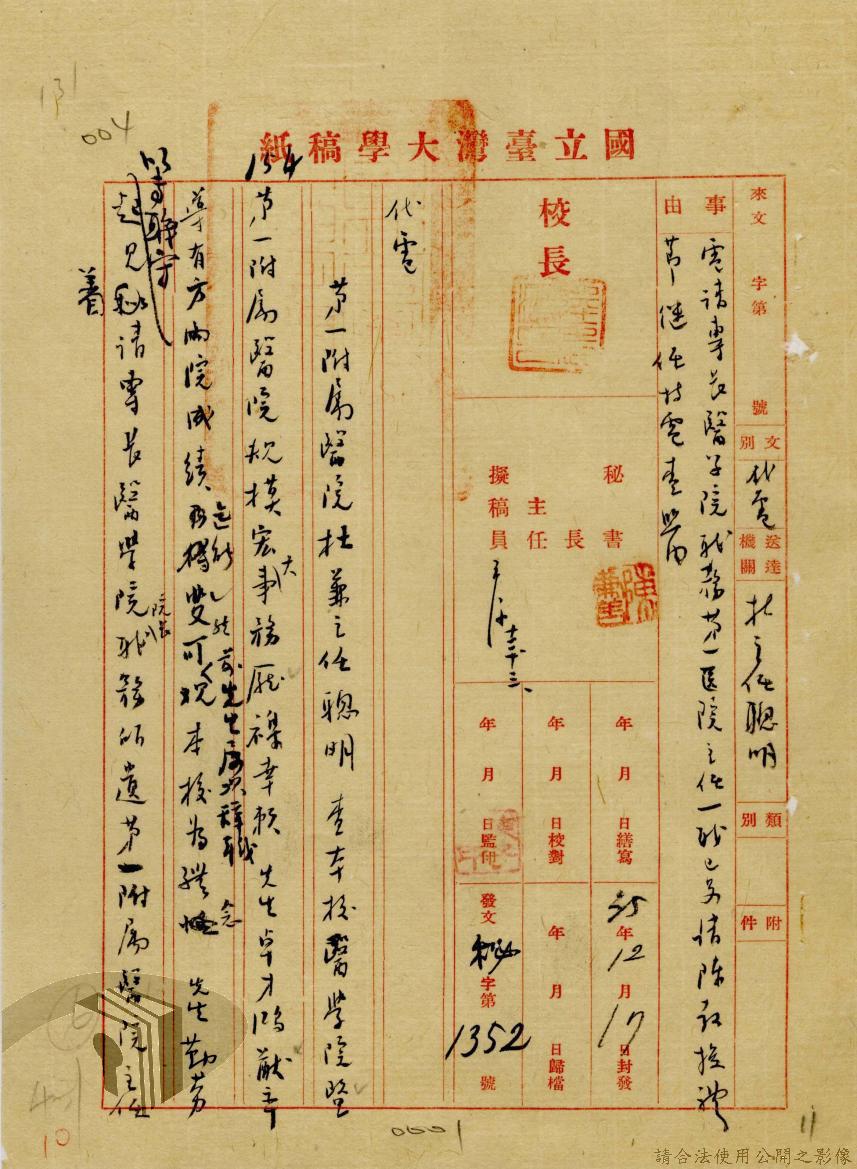 國立臺灣大學稿紙
131
004
134
來文 字第 號
文別 代電
送達機關 杜主任聰明
類別
附件
事由
電請專長醫學院職務第一醫院主任一職已另請陳教授禮
節繼任特電查照由
校長
秘書
主任
秘書長
擬稿員
年 月 日繕寫
年 月 日校對
年 月 日監印
35年12月17日封發
年 月 日歸檔
發文 秘 字第 1352 號
代電
第一附屬醫院杜兼主任聰明 查本校醫學院暨
第一附屬醫院規模宏大事務厖襍幸賴 先生卓才鴻猷率
導有方兩院成績 可觀本校為體念 先生勤勞
先生屢次辭職
起見敬請專長醫學院院長職務所遺第一附屬醫院主任
0001
11
10
請合法使用公開之影像